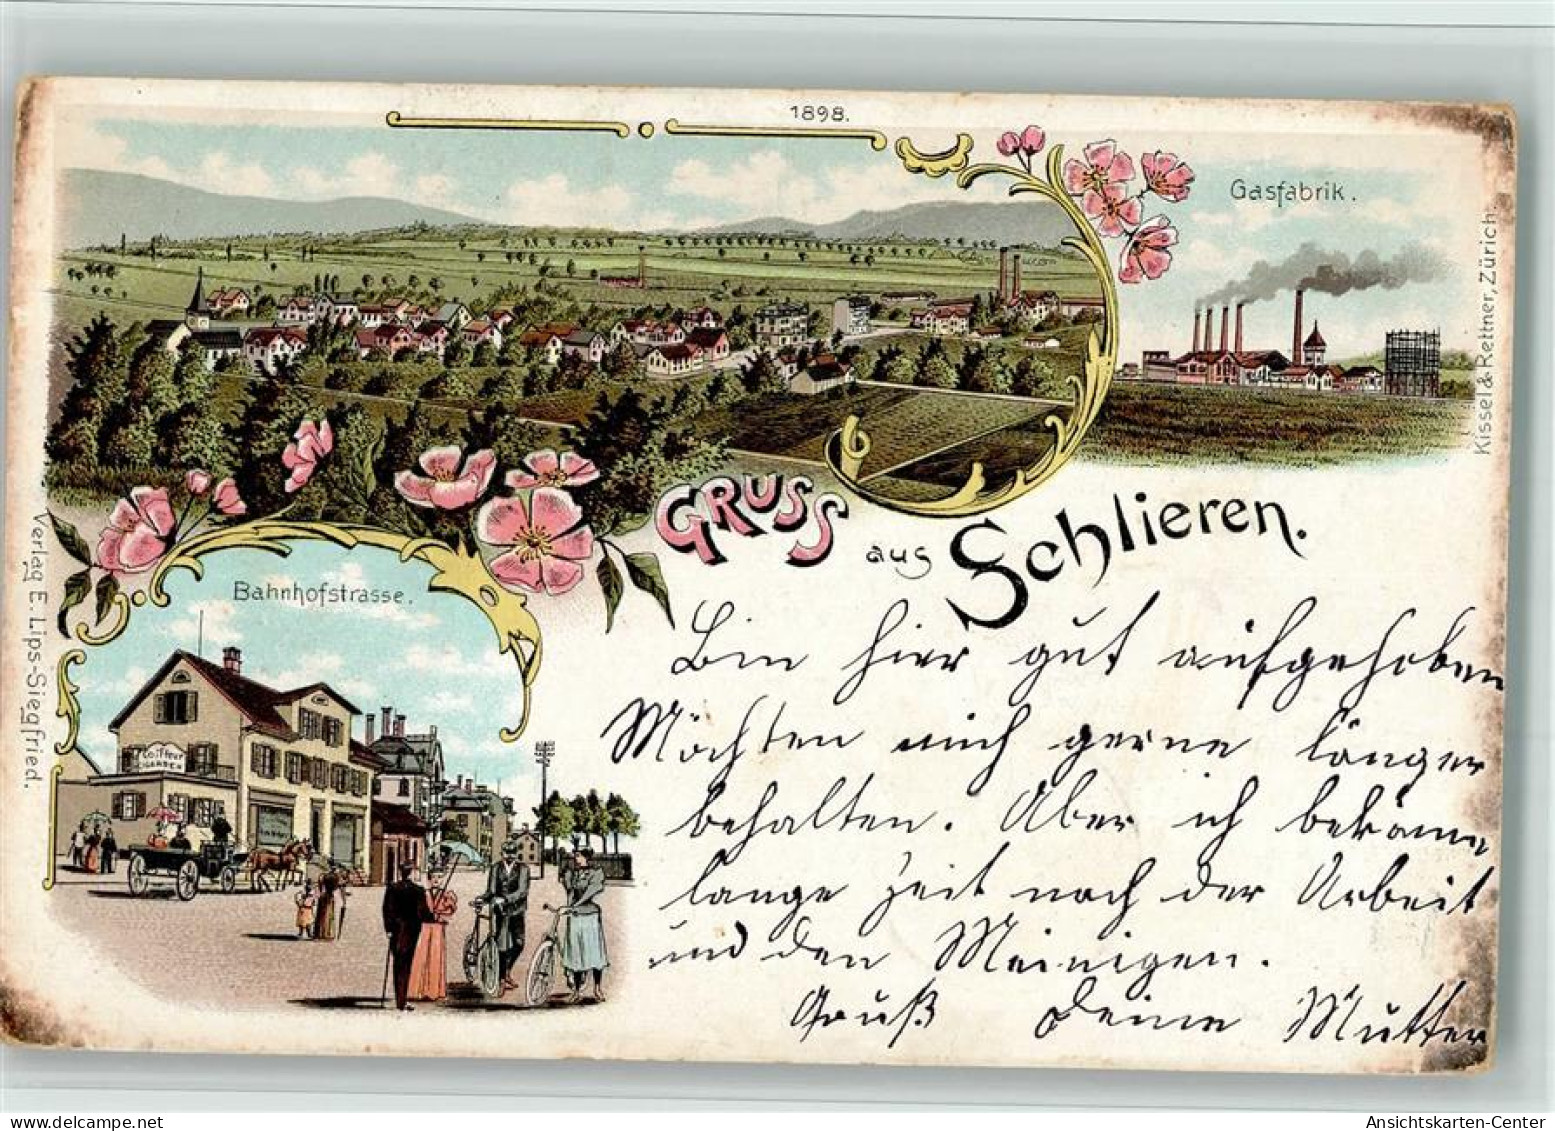 1898.
Gasfabrik.
Kissel & Rettner, Zürich.
GRUSS aus Schlieren.
Bahnhofstrasse.
Coiffeur
CIGARREN
Verlag E. Lips-Siegfried.
Bin hier gut aufgehoben
Möchten mich gerne länger
behalten. Aber ich bekäme
lange Zeit nach der Arbeit
und den Meinigen.
Gruß Deine Mutter
Ansichtskarten-Center